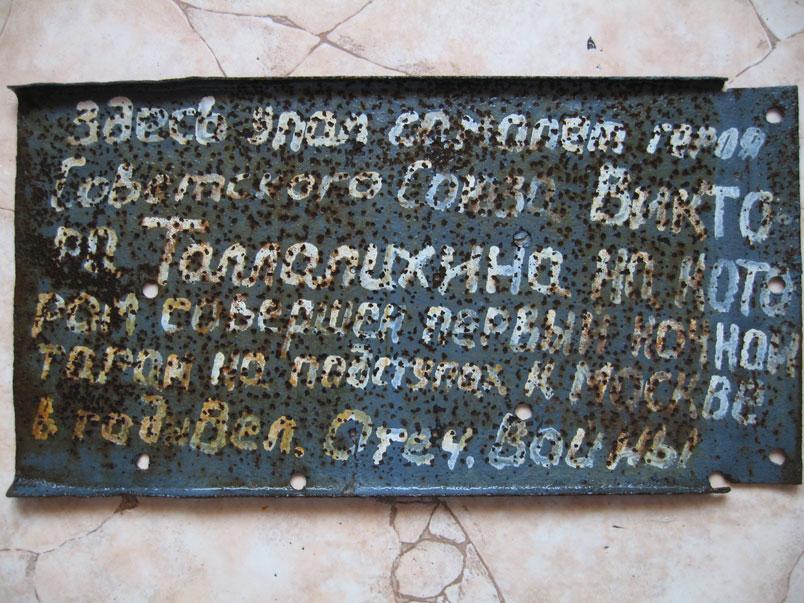 Здесь упал самолет героя
Советского Союза Викто-
ра Талалихина на кото
ром совершен первый ночной
таран на подступах к МОСКВЕ
в годы Вел. Отеч. Войны